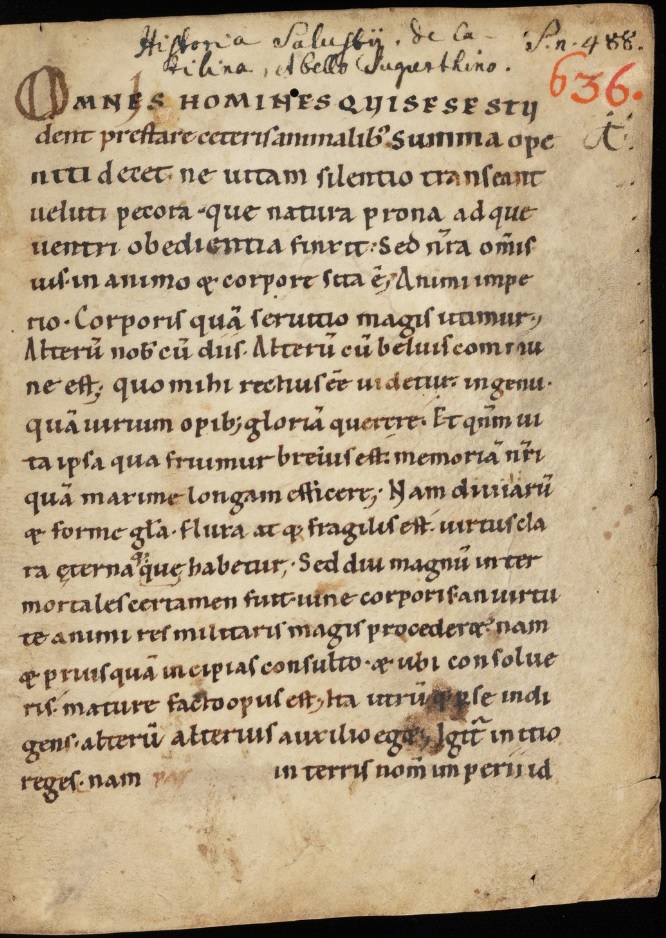 Historia Salustij. de Ca-
tilina, et bello Jugurthino.
S. n. 488.
636.
OMNES HOMINES QUI SESE STU
dent prestare ceteris animalib; Summa ope
niti decet. ne uitam silentio transeant
ueluti pecora. que natura prona adque
uentri obedientia finxit. Sed nr̄a om̄is
uis. in animo & corpore sita ē; Animi impe
rio. Corporis quā seruitio magis utimur;
Alterū nob̄ cū diis. Alterū cū beluis commu
ne est; quo mihi rectius ēē uidetur. ingenii.
quā uirium opib; gloriā querere. Et qn̄m ui
ta ipsa qua fruimur breuis est. memoriā nr̄i
quā maxime longam efficere; Nam diuitiarū
& forme gl̄a. fluxa atq; fragilis est. uirtus cla
ra ęterna que habetur; Sed diu magnū inter
mortales certamen fuit. uine corporis. an uirtu
te animi res militaris magis procederet. nam
& prius quā incipias consulto. & ubi consolue
ris. mature facto opus est; Ita utrūq; p se indi
gens. alterū alterius auxilio eget; Igit̄ initio
reges. nam in terris nom̄ imperii id